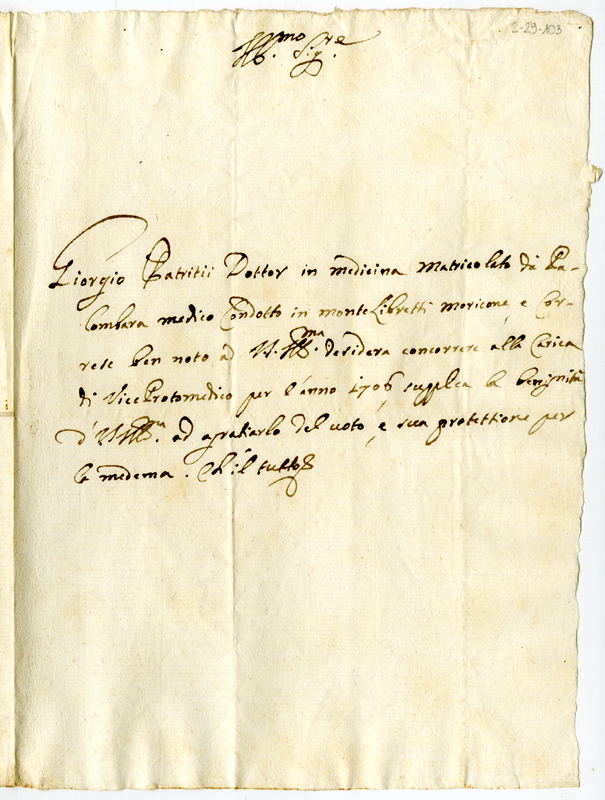 2-29-103
Ill.mo Sig.re
Giorgio Patritii Dottor in medicina Matricolato di Pa-
lombara medico Condotto in monte Libretti moricone, e Cor-
rese ben noto ad V. Ill.ma desidera concorrere alla Carica
di Vice Protomedico per l'anno 1706 supplica la benignità
d'V. Ill.ma ad agratiarlo del voto, e sua protettione per
la medema. Ch'il tutto